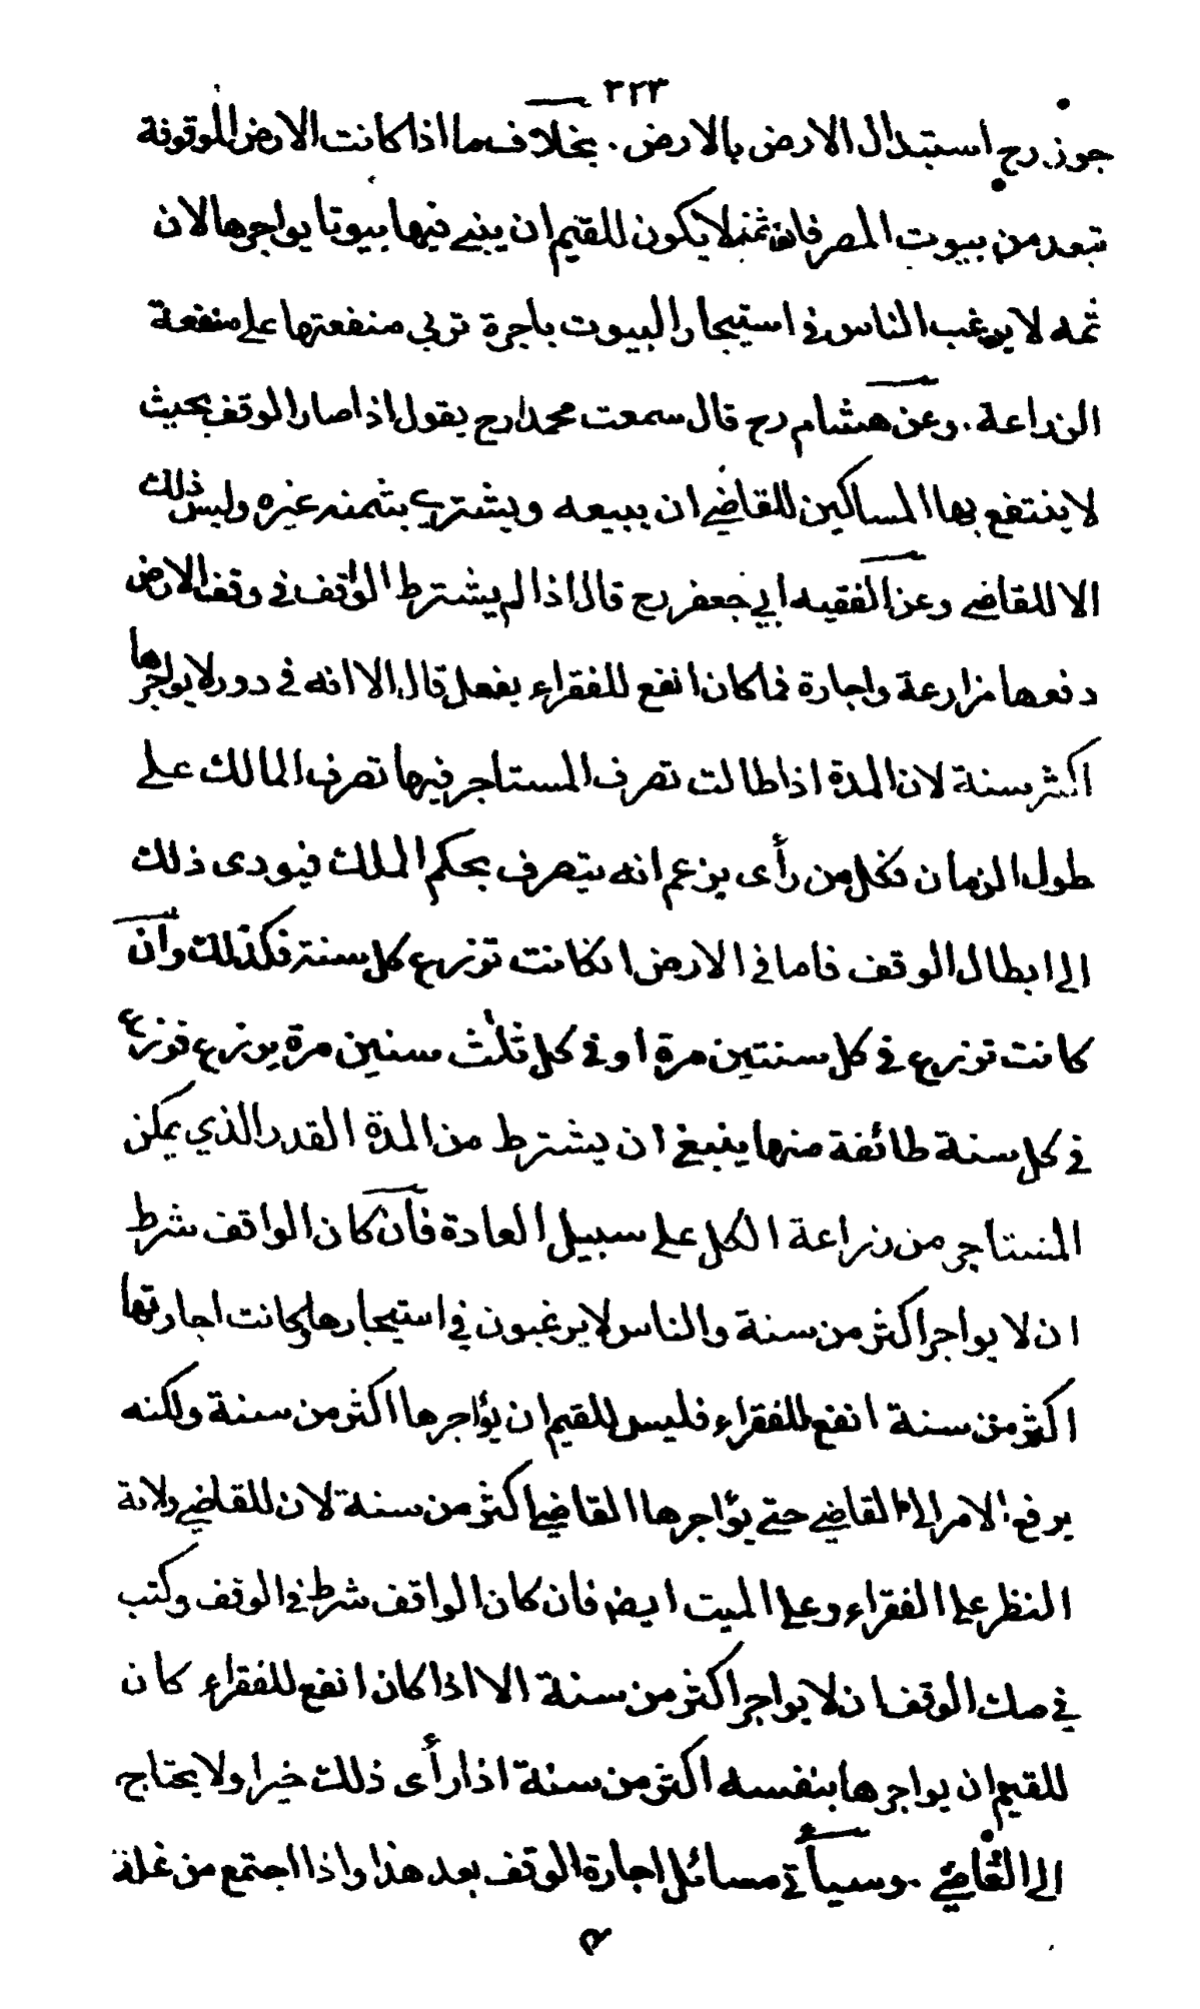 ٣٢٣
جوز رح استبدال الارض بالارض . بخلاف ما اذا كانت الارض الموقوفة
تبعد من بيوت المصر فان ثمه لا يكون للقيم ان يبني فيها بيوتا يواجرها لان
ثمه لا يرغب الناس في استيجار البيوت باجرة تربي منفعتها على منفعة
الزراعة . وعن هشام رح قال سمعت محمدا رح يقول اذا صار الوقف بحيث
لا ينتفع بها المساكين للقاضي ان يبيعه ويشتري بثمنه غيره وليس ذلك
الا للقاضي وعن الفقيه ابي جعفر رح قال اذا لم يشترط الواقف في وقف الارض
دفعها مزارعة واجارة فما كان انفع للفقراء يفعل قال الا انه في دور لا يواجرها
اكثر سنة لان المدة اذا طالت تصرف المستاجر فيها تصرف المالك على
طول الزمان فكل من رأى يزعم انه يتصرف بحكم الملك فيودى ذلك
الى ابطال الوقف فاما في الارض انكانت تزرع كل سنة فكذلك وان
كانت تزرع في كل سنتين مرة او في كل ثلث سنين مرة يزرع فوزع
في كل سنة طائفة منها ينبغي ان يشترط من المدة القدر الذي يمكن
المستاجر من زراعة الكل على سبيل العادة فان كان الواقف شرط
ان لا يواجر اكثر من سنة والناس لا يرغبون في استيجارها وكانت اجارتها
اكثر من سنة انفع للفقراء فليس للقيم ان يؤاجرها اكثر من سنة ولكنه
يرفع الامر الى القاضي حتى يؤاجرها القاضي اكثر من سنة لان للقاضي ولاية
النظر على الفقراء وعلى الميت ايضا فان كان الواقف شرط في الوقف وكتب
في صك الوقف ان لا يواجر اكثر من سنة الا اذا كان انفع للفقراء كان
للقيم ان يواجرها بنفسه اكثر من سنة اذا رأى ذلك خيرا ولا يحتاج
الى القاضي . وسيأتي مسائل اجارة الوقف بعد هذا واذا اجتمع من غلة